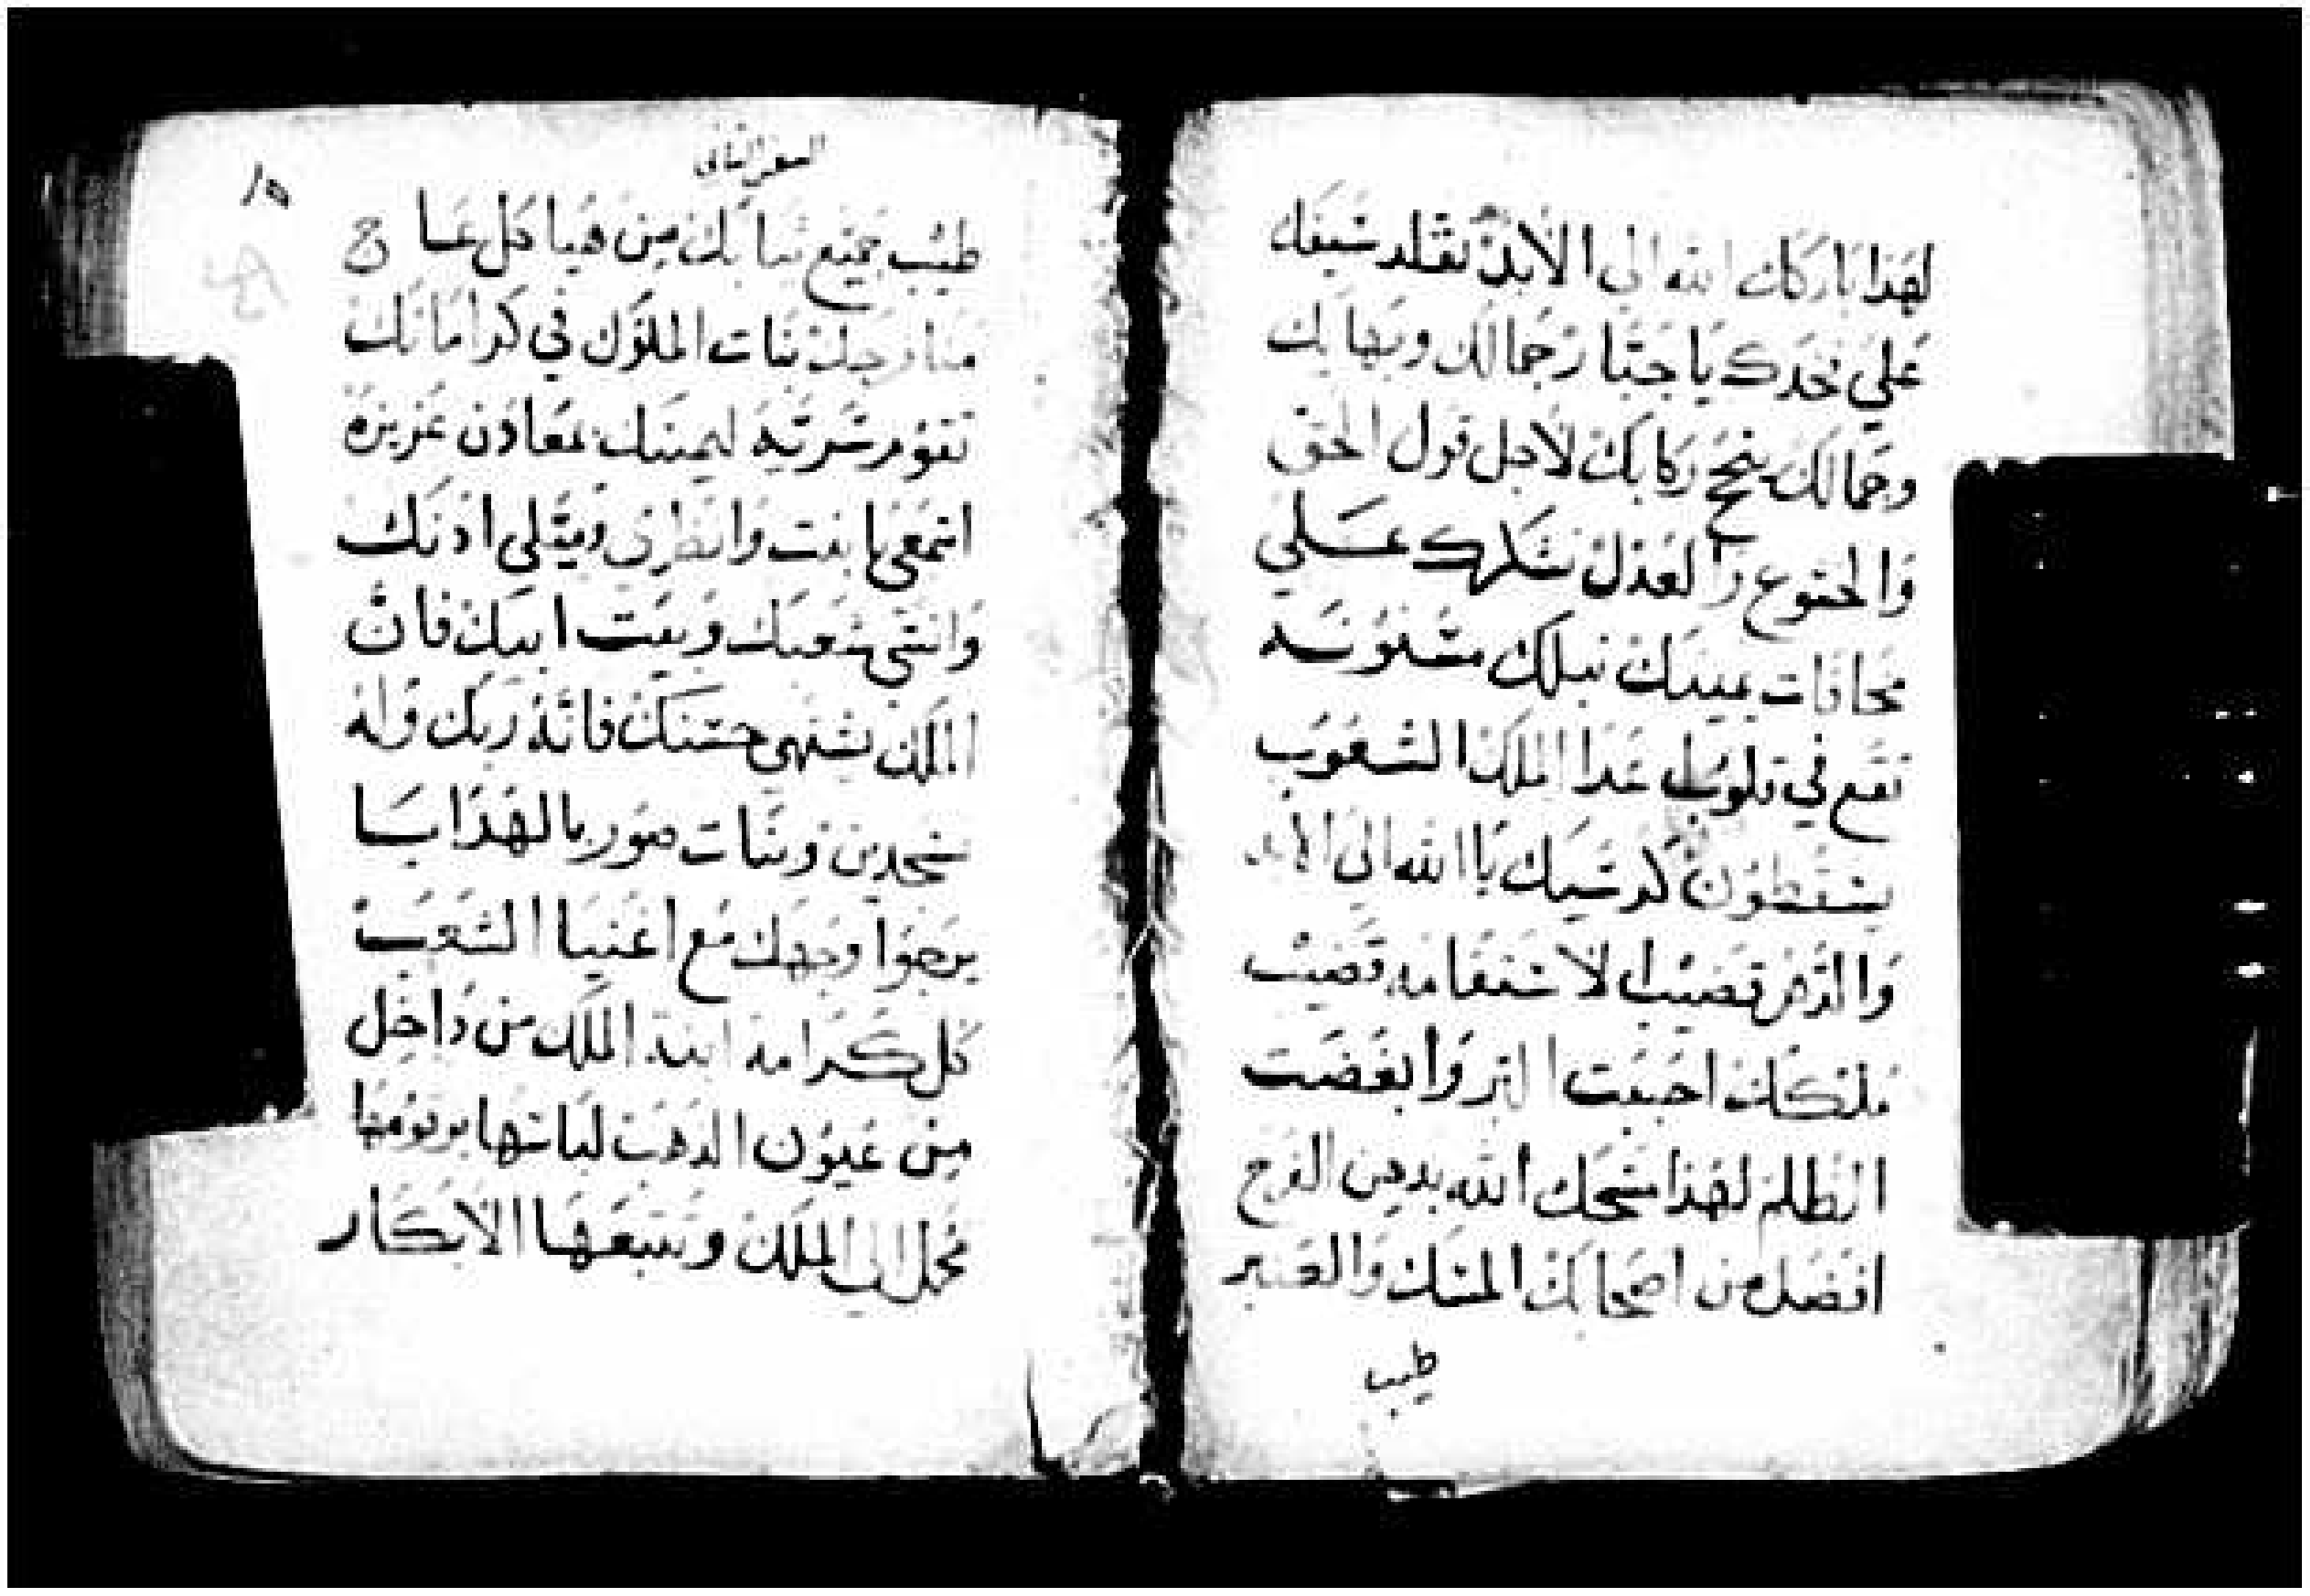 لهذا باركك الله الى الابد تقلد سيفك
علي فخدك يا جبار جمالك وبهايك
وجمالك ينجح ركابك لاجل قول الحق
والخشوع والعدل تشكرك علي
محافات يمينك نبلك مسنونه
تقع في قلوب عدا الملك الشعوب
يسقطون كرسيك يا الله الى الابد
والدهر قضيب الاستقامه قضيب
ملكك احببت البر وابغضت
الظلم لهذا مسحك الله بدهن الفرح
افضل من اصحابك المسك والعنبر
طيب
السفر الثاني
١٥
طيب جميع ثيابك من هياكل عاج
منازحك بنات الملوك في كراماتك
تقوم سريه ليمينك بمعادن عزيزة
اسمعي يا بنت وانظري وميلي اذنك
وانسي شعبك وبيت ابيك فان
الملك يشتهي حسنك فانه ربك وله
سجدين وبنات صور بالهدايا
يرجوا وجهك مع اغنيا الشعب
كل كرامة ابنة الملك من داخل
من عيون الدهب لباسها برقومها
تحمل الى الملك وتتبعها الابكار